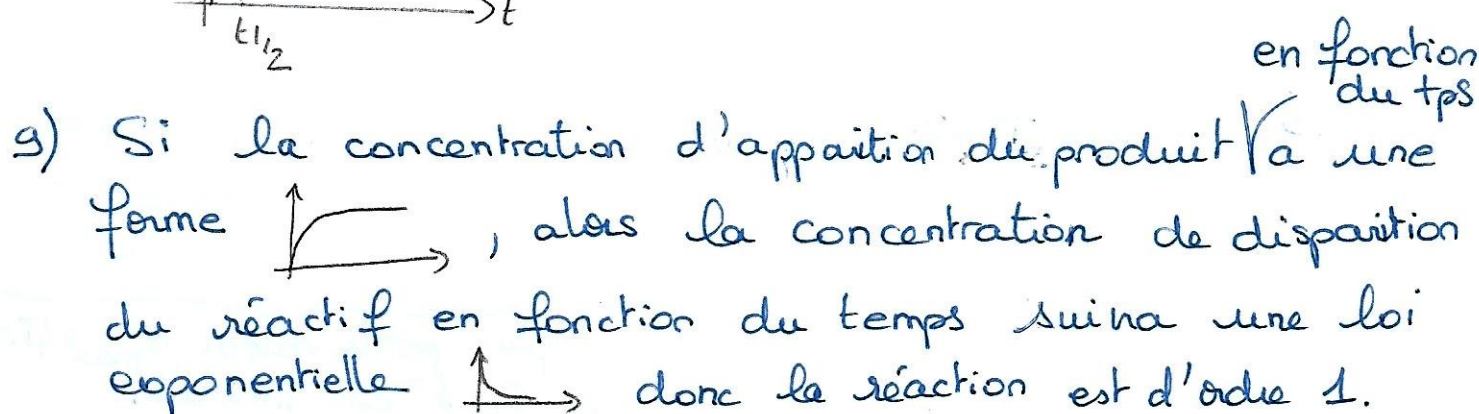 t1/2 t
en fonction
du tps
9) Si la concentration d'appaition du produit a une
forme , alors la concentration de disparition
du réactif en fonction du temps suivra une loi
exponentielle donc la réaction est d'ordre 1.